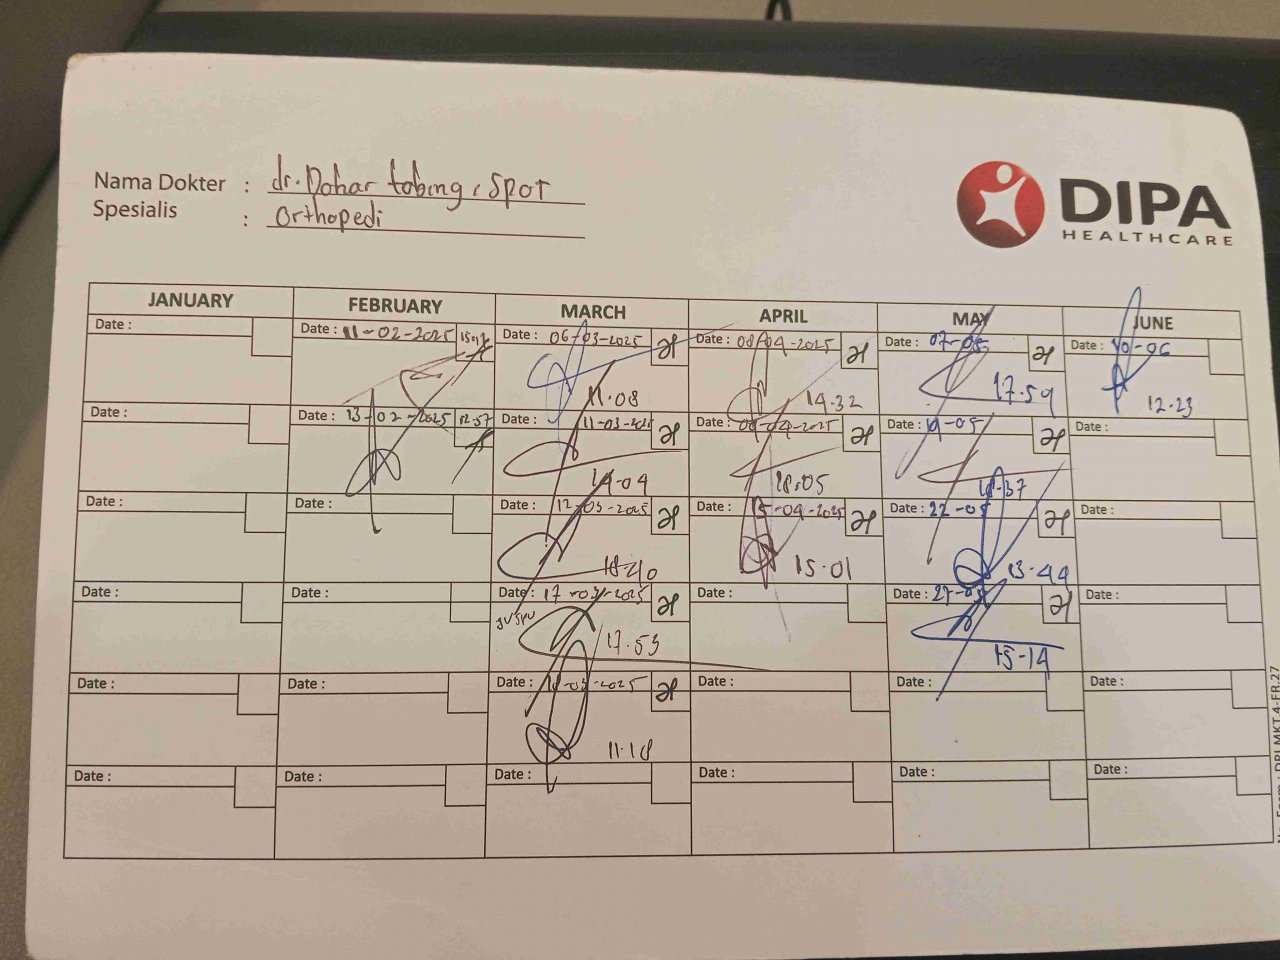 Nama Dokter : dr. Dohar tobing, SpOT
Spesialis : Orthopedi
DIPA
HEALTHCARE
JANUARY FEBRUARY MARCH APRIL MAY JUNE
Date : Date : 11-02-2025 Date : 06-03-2025 Date : 08-04-2025 Date : 07-05 Date : 10-06
11.08 14.32 17.59 12.23
Date : Date : 13-02-2025 12.57 Date : 11-03-2025 Date : Date : 19-05 Date :
14.04 18.05 18.37
Date : Date : Date : 12-03-2025 Date : 15-04-2025 Date : 22-05 Date :
18.40 15.01 13.44
Date : Date : Date : 17-03-2025 Date : Date : 27-05 Date :
17.53 15-14
Date : Date : Date : 18-03-2025 Date : Date : Date :
11.18
Date : Date : Date : Date : Date : Date :